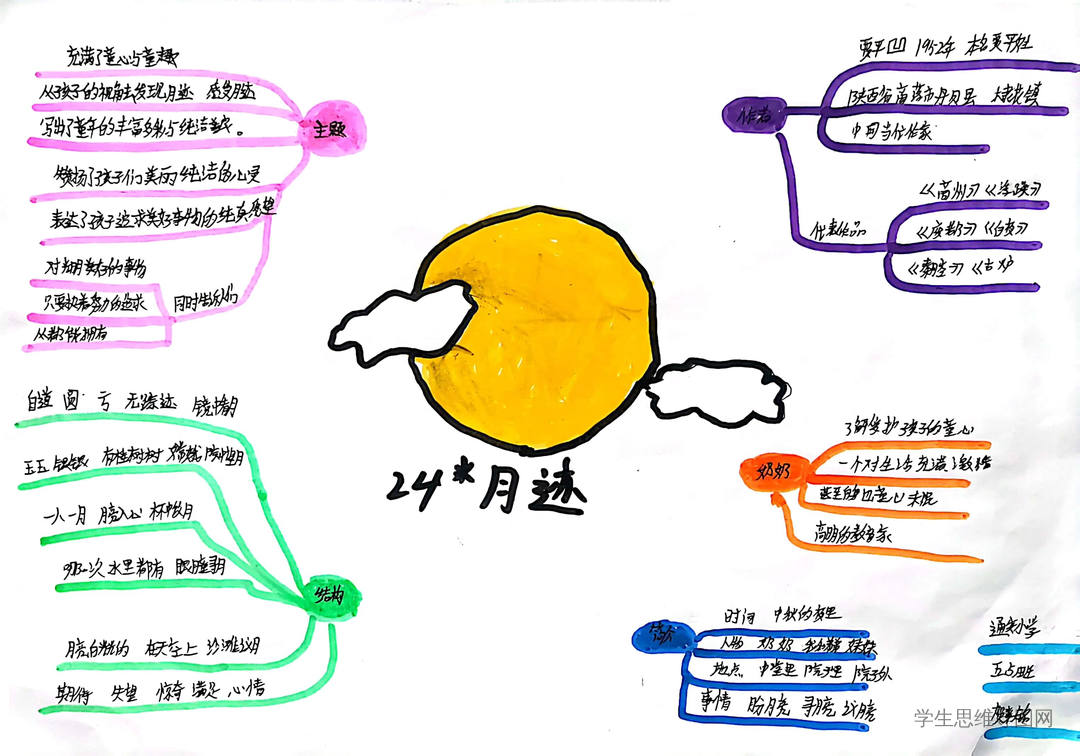 24*月迹
主题
充满了童心与童趣
从孩子的视角去发现月迹 感受月迹
写出了童年的丰富多彩与纯洁
赞扬了孩子们美丽纯洁的心灵
表达了孩子追求美好事物的纯真愿望
同时告诉人们
对拥美好的事物
只要执着努力的追求
人都能拥有
结构
白道 圆 亏 无踪迹 镜中月
玉玉 银银 有桂树 院中月
一人一月 月亮入心 杯中月
水里都有 眼睛寻月
月亮白粉的 在天空上 沙滩议月
期待 失望 惊奇 满足 心情
作者
贾平凹 1952年 本名贾平娃
陕西省商洛市丹凤县 棣花镇
中国当代作家
代表作品
《商州》《浮躁》
《废都》《白夜》
《秦腔》《古炉
奶奶
了解爱护孩子的童心
一个对生活充满了
甚至的口童心未泯
高明的教育家
简介
时间 中秋的夜里
人物 奶奶
地点 中堂里 院子里 院子外
事情 盼月亮 寻月亮 议月亮
小学
学生思维导图网